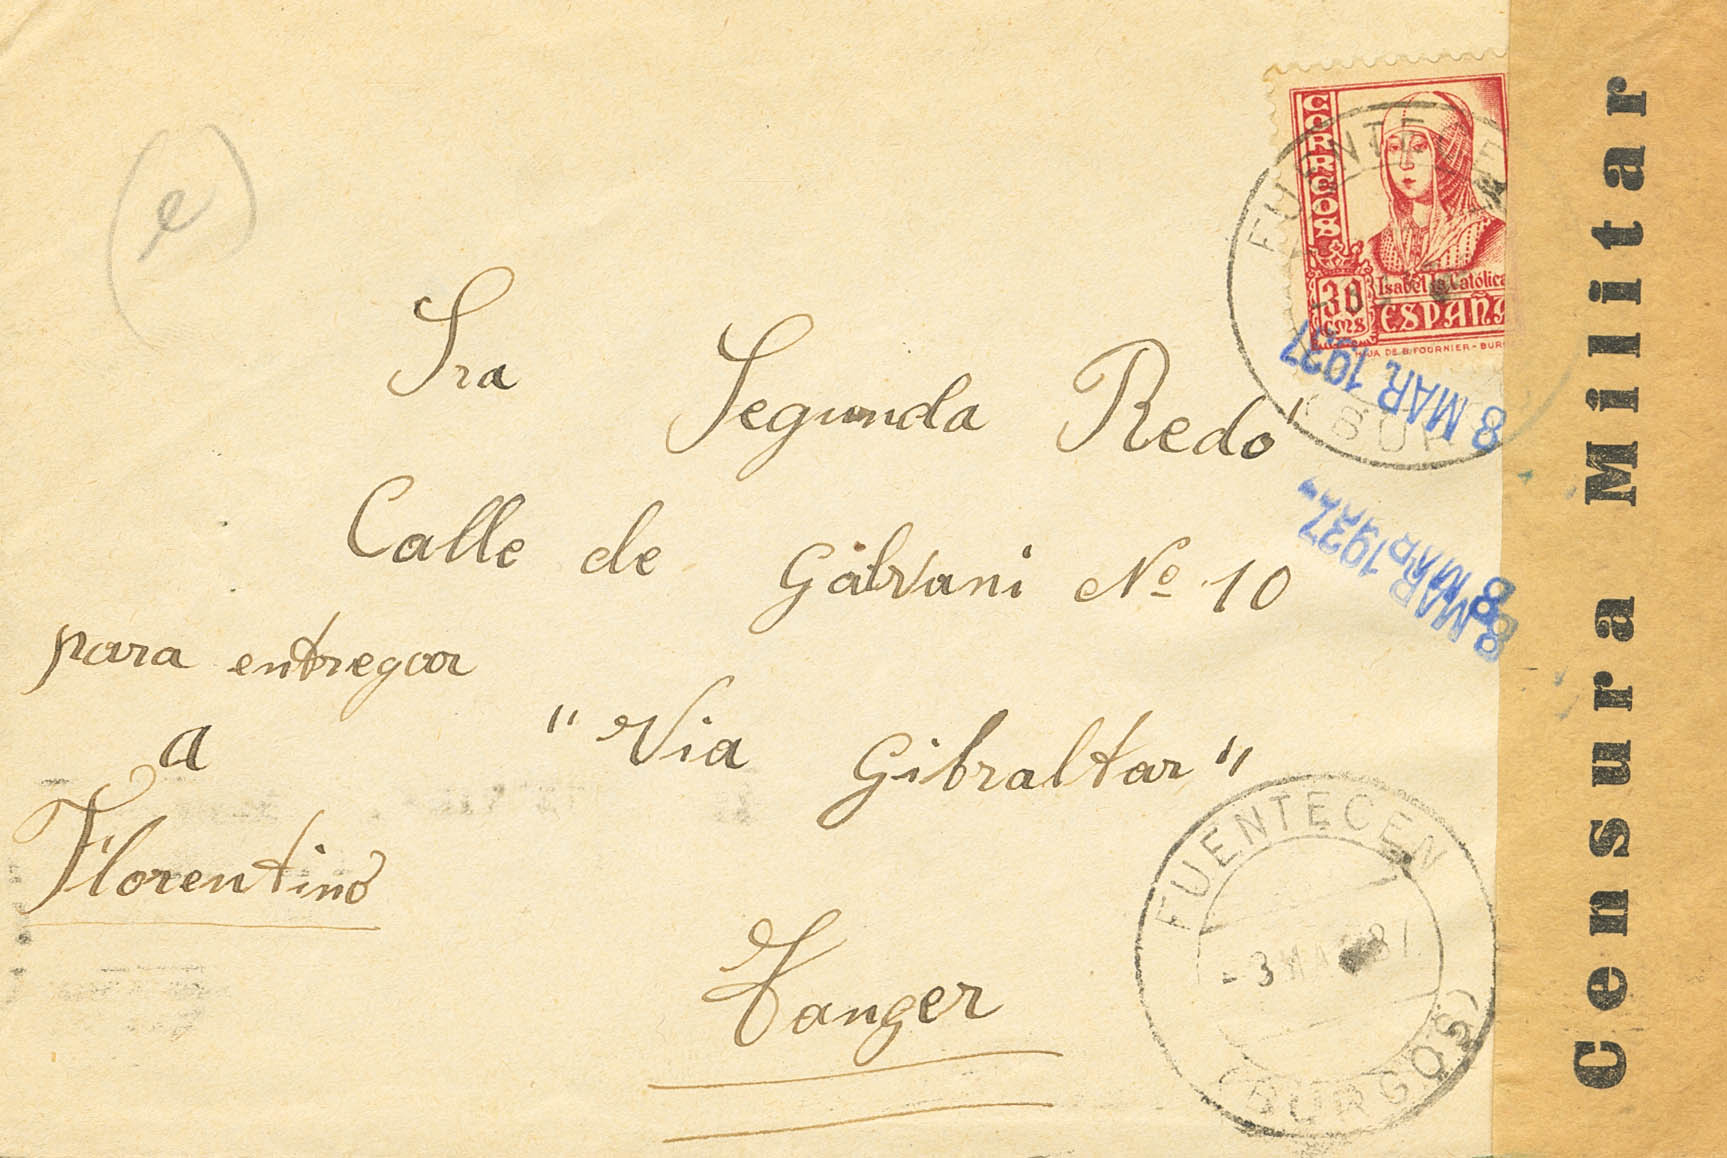 (e)
CORREOS
30
CMS
Isabel la Católica
ESPAÑA
HIJA DE B. FOURNIER - BUR
FUENTECEN
(BUR
8 MAR. 1937
8 MAR 1937
8 MAR
Sra Segunda Redo
Calle de Galvani Nº 10
para entregar
a
Florentino
"Via Gibraltar"
Tanger
FUENTECEN
-3 MAR 37
(BURGOS)
Censura Militar